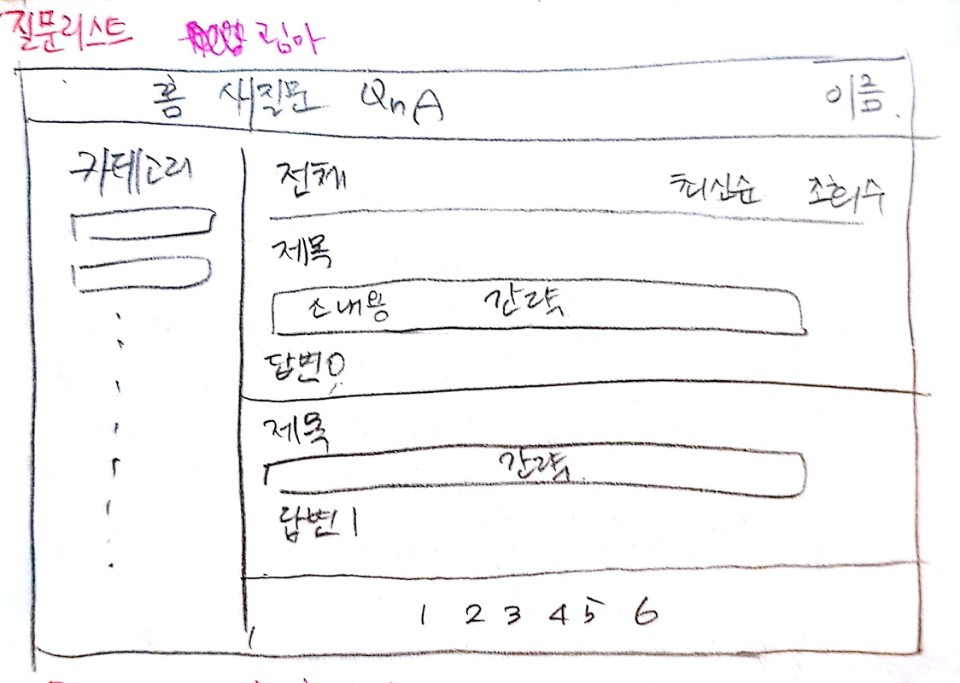 질문리스트 고림아
홈 새질문 QnA 이름
카테고리
전체 최신순 조회수
제목
소내용 간략
답변0
제목
간략
답변 1
1 2 3 4 5 6